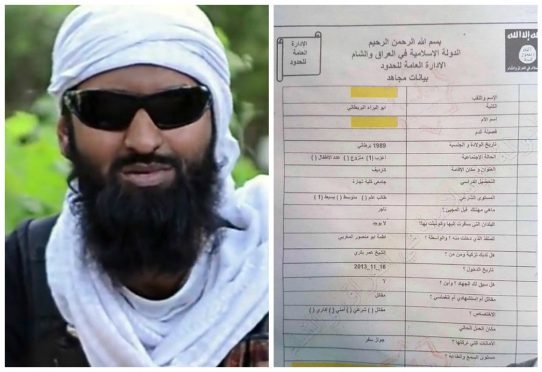 الادارة
العامة
للحدود
بسم الله الرحمن الرحيم
الدولة الاسلامية في العراق والشام
الادارة العامة للحدود
بيانات مجاهد
الإسم واللقب
الكنية ابو البراء البريطاني
إسم الأم
فصيلة الدم
تاريخ الولادة و الجنسية 1989 برطاني
الحالة الاجتماعية اعزب (1) متزوج ( ) عدد الأطفال ( )
العنوان و مكان الاقامة كارديف
التحصيل الدراسي جامعي كلية تجارة
المستوى الشرعي طالب علم ( ) متوسط ( ) بسيط (1)
ماهي مهنتك قبل المجيئ؟ تاجر
البلدان التي سافرت إليها وكم لبثت بها؟ لا يوجد
المنفذ الذي دخلت منه ؟ والواسطة ؟ اطمة ابو منصور المغربي
هل لديك تزكية ومن من ؟ الشيخ عمر بكري
تاريخ الدخول 16_11_2013
هل سبق لك الجهاد ؟ واين ؟ لا
مقاتل أم إستشهادي أم إنغماسي ؟ مقاتل
الاختصاص ؟ مقاتل ( ) شرعي ( ) أمني ( ) إداري ( )
مكان العمل الحالي
الأمانات التي تركتها ؟ جواز سفر
مستوى السمع والطاعة ؟